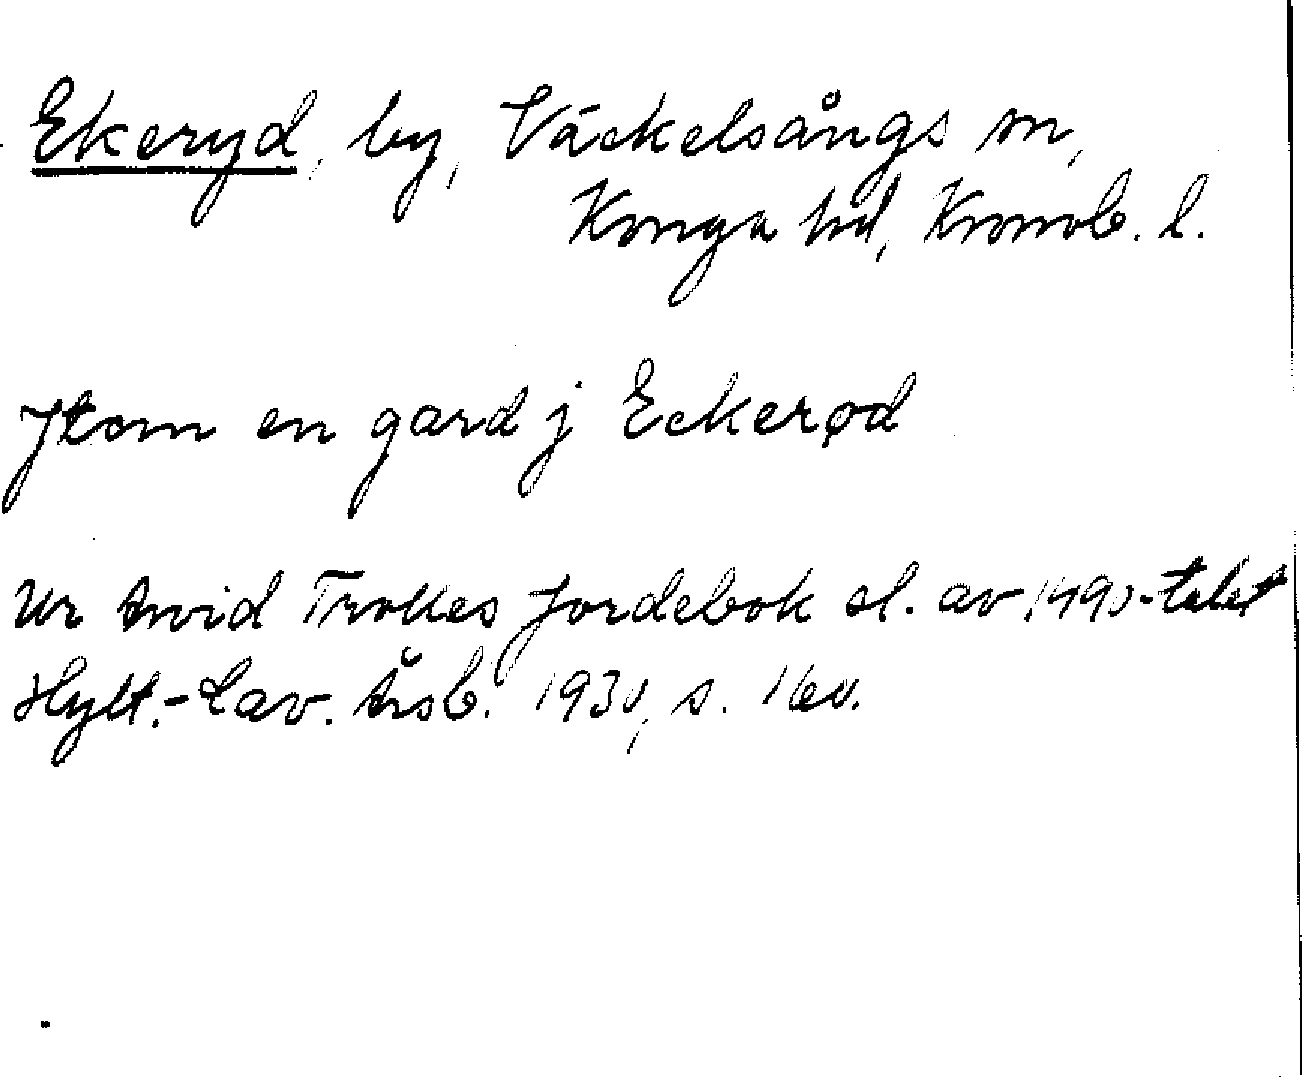 Ekeryd, by, Väckelsångs sn,
Konga hd, Kronob. l.
Jtem en gard j Eckerød
Ur Arvid Trolles Jordebok sl. av 1490-talet
Hylt.-Cav. Årsb. 1930, s. 160.